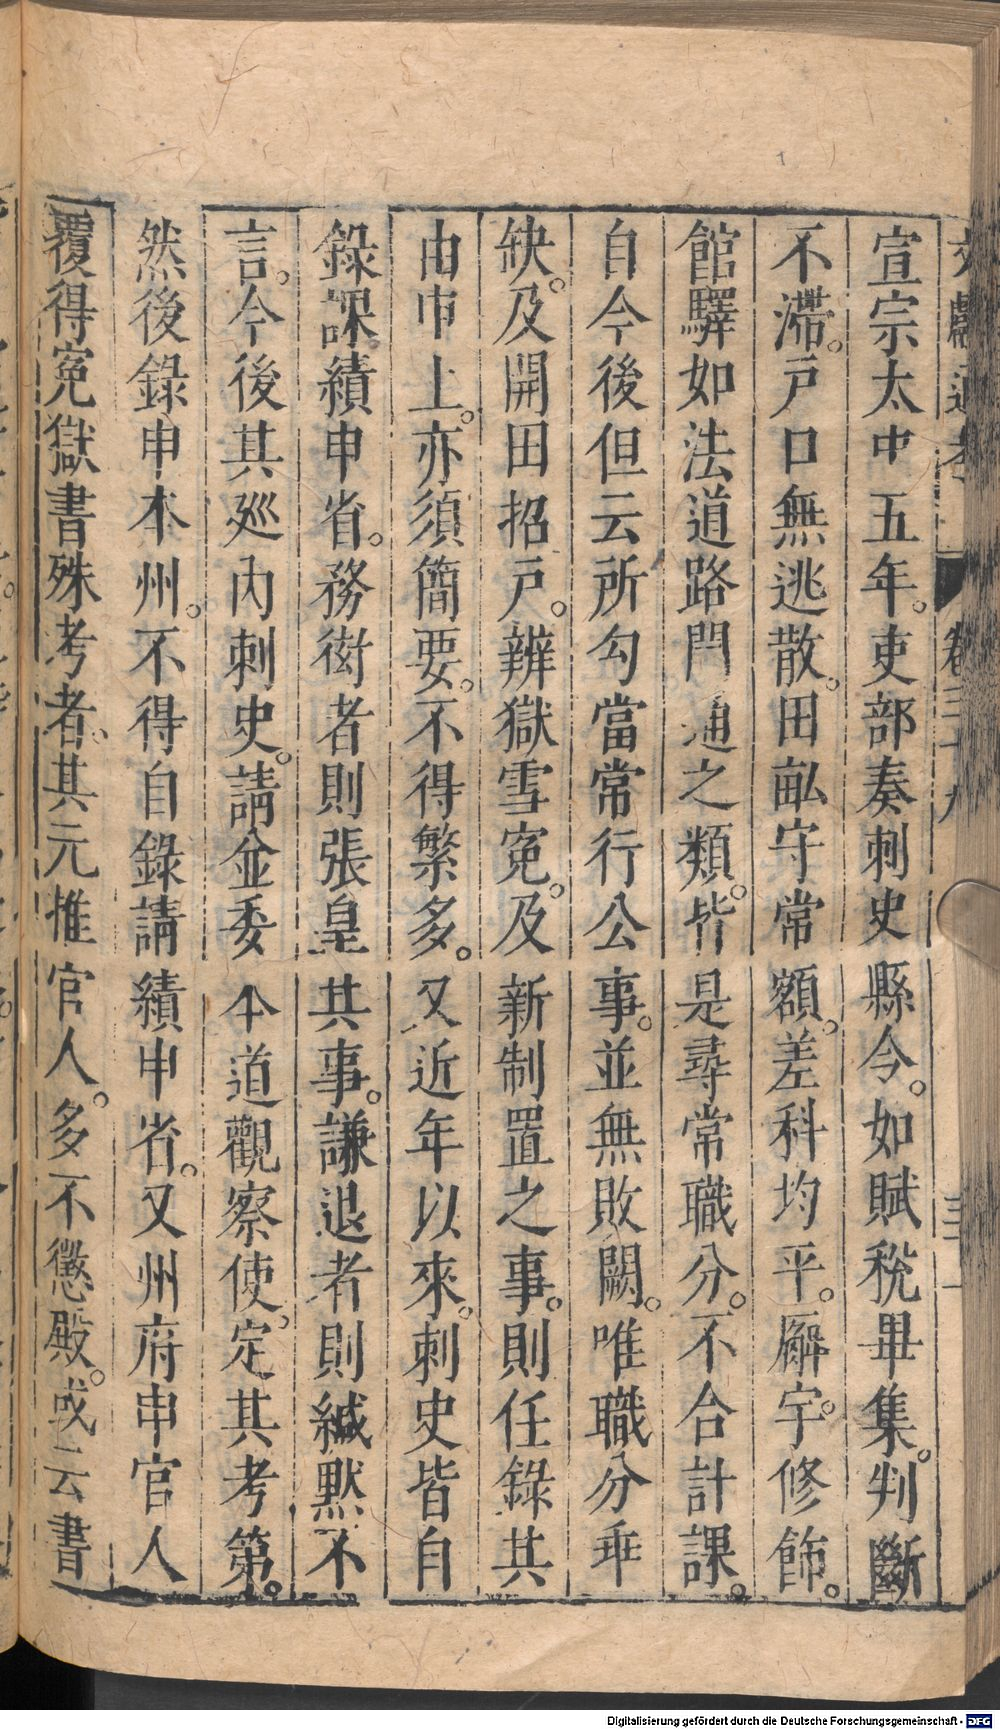 文獻通考 卷三十九 三十一
宣宗太中五年。吏部奏刺史縣令。如賦稅畢集。判斷
不滯。戸口無逃散。田畝守常額。差科均平。廨宇修飾。
館驛如法道路開通之類。皆是尋常職分。不合計課。
自今後但云所勾當常行公事。並無敗闕。唯職分乖
缺。及開田招戸。辨獄雪寃。及新制置之事。則任錄其
由申上。亦須簡要。不得繁多。又近年以來。刺史皆自
錄課績申省。務衒者則張皇其事。謙退者則緘默不
言。今後其廵內刺史。請並委本道觀察使。定其考第。
然後錄申本州。不得自錄請績申省。又州府申官人
覆得寃獄書殊考者。其元推官人。多不懲殿。或云書
Digitalisierung gefördert durch die Deutsche Forschungsgemeinschaft - DFG